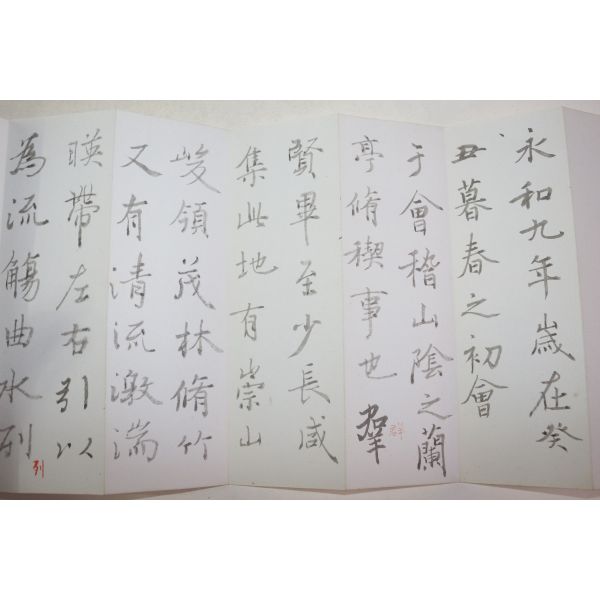 永和九年歲在癸
丑暮春之初會
于會稽山陰之蘭
亭脩稧事也羣
群
賢畢至少長咸
集此地有崇山
峻領茂林脩竹
又有清流激湍
暎帶左右引以
為流觴曲水列
列